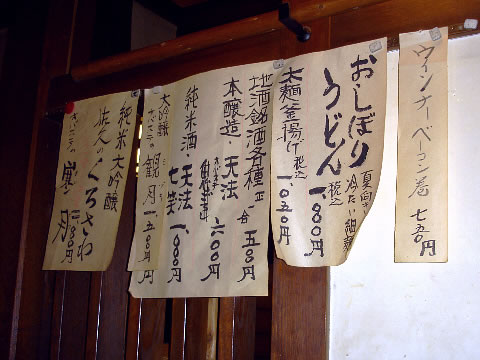 ウィンナーベーコン巻 七五〇円
おしぼりうどん
夏向き 冷たい細麺
税込 一、八〇〇円
太麺釜揚げ 税込 一、〇五〇円
地酒銘酒各種 正一合 五〇〇円
本醸造・天法
六〇〇円
純米酒・天法
七笑 一、八〇〇円
大吟醸
観月 一、五〇〇円
純米大吟醸
佐久 くろさわ
月 二、八〇〇円